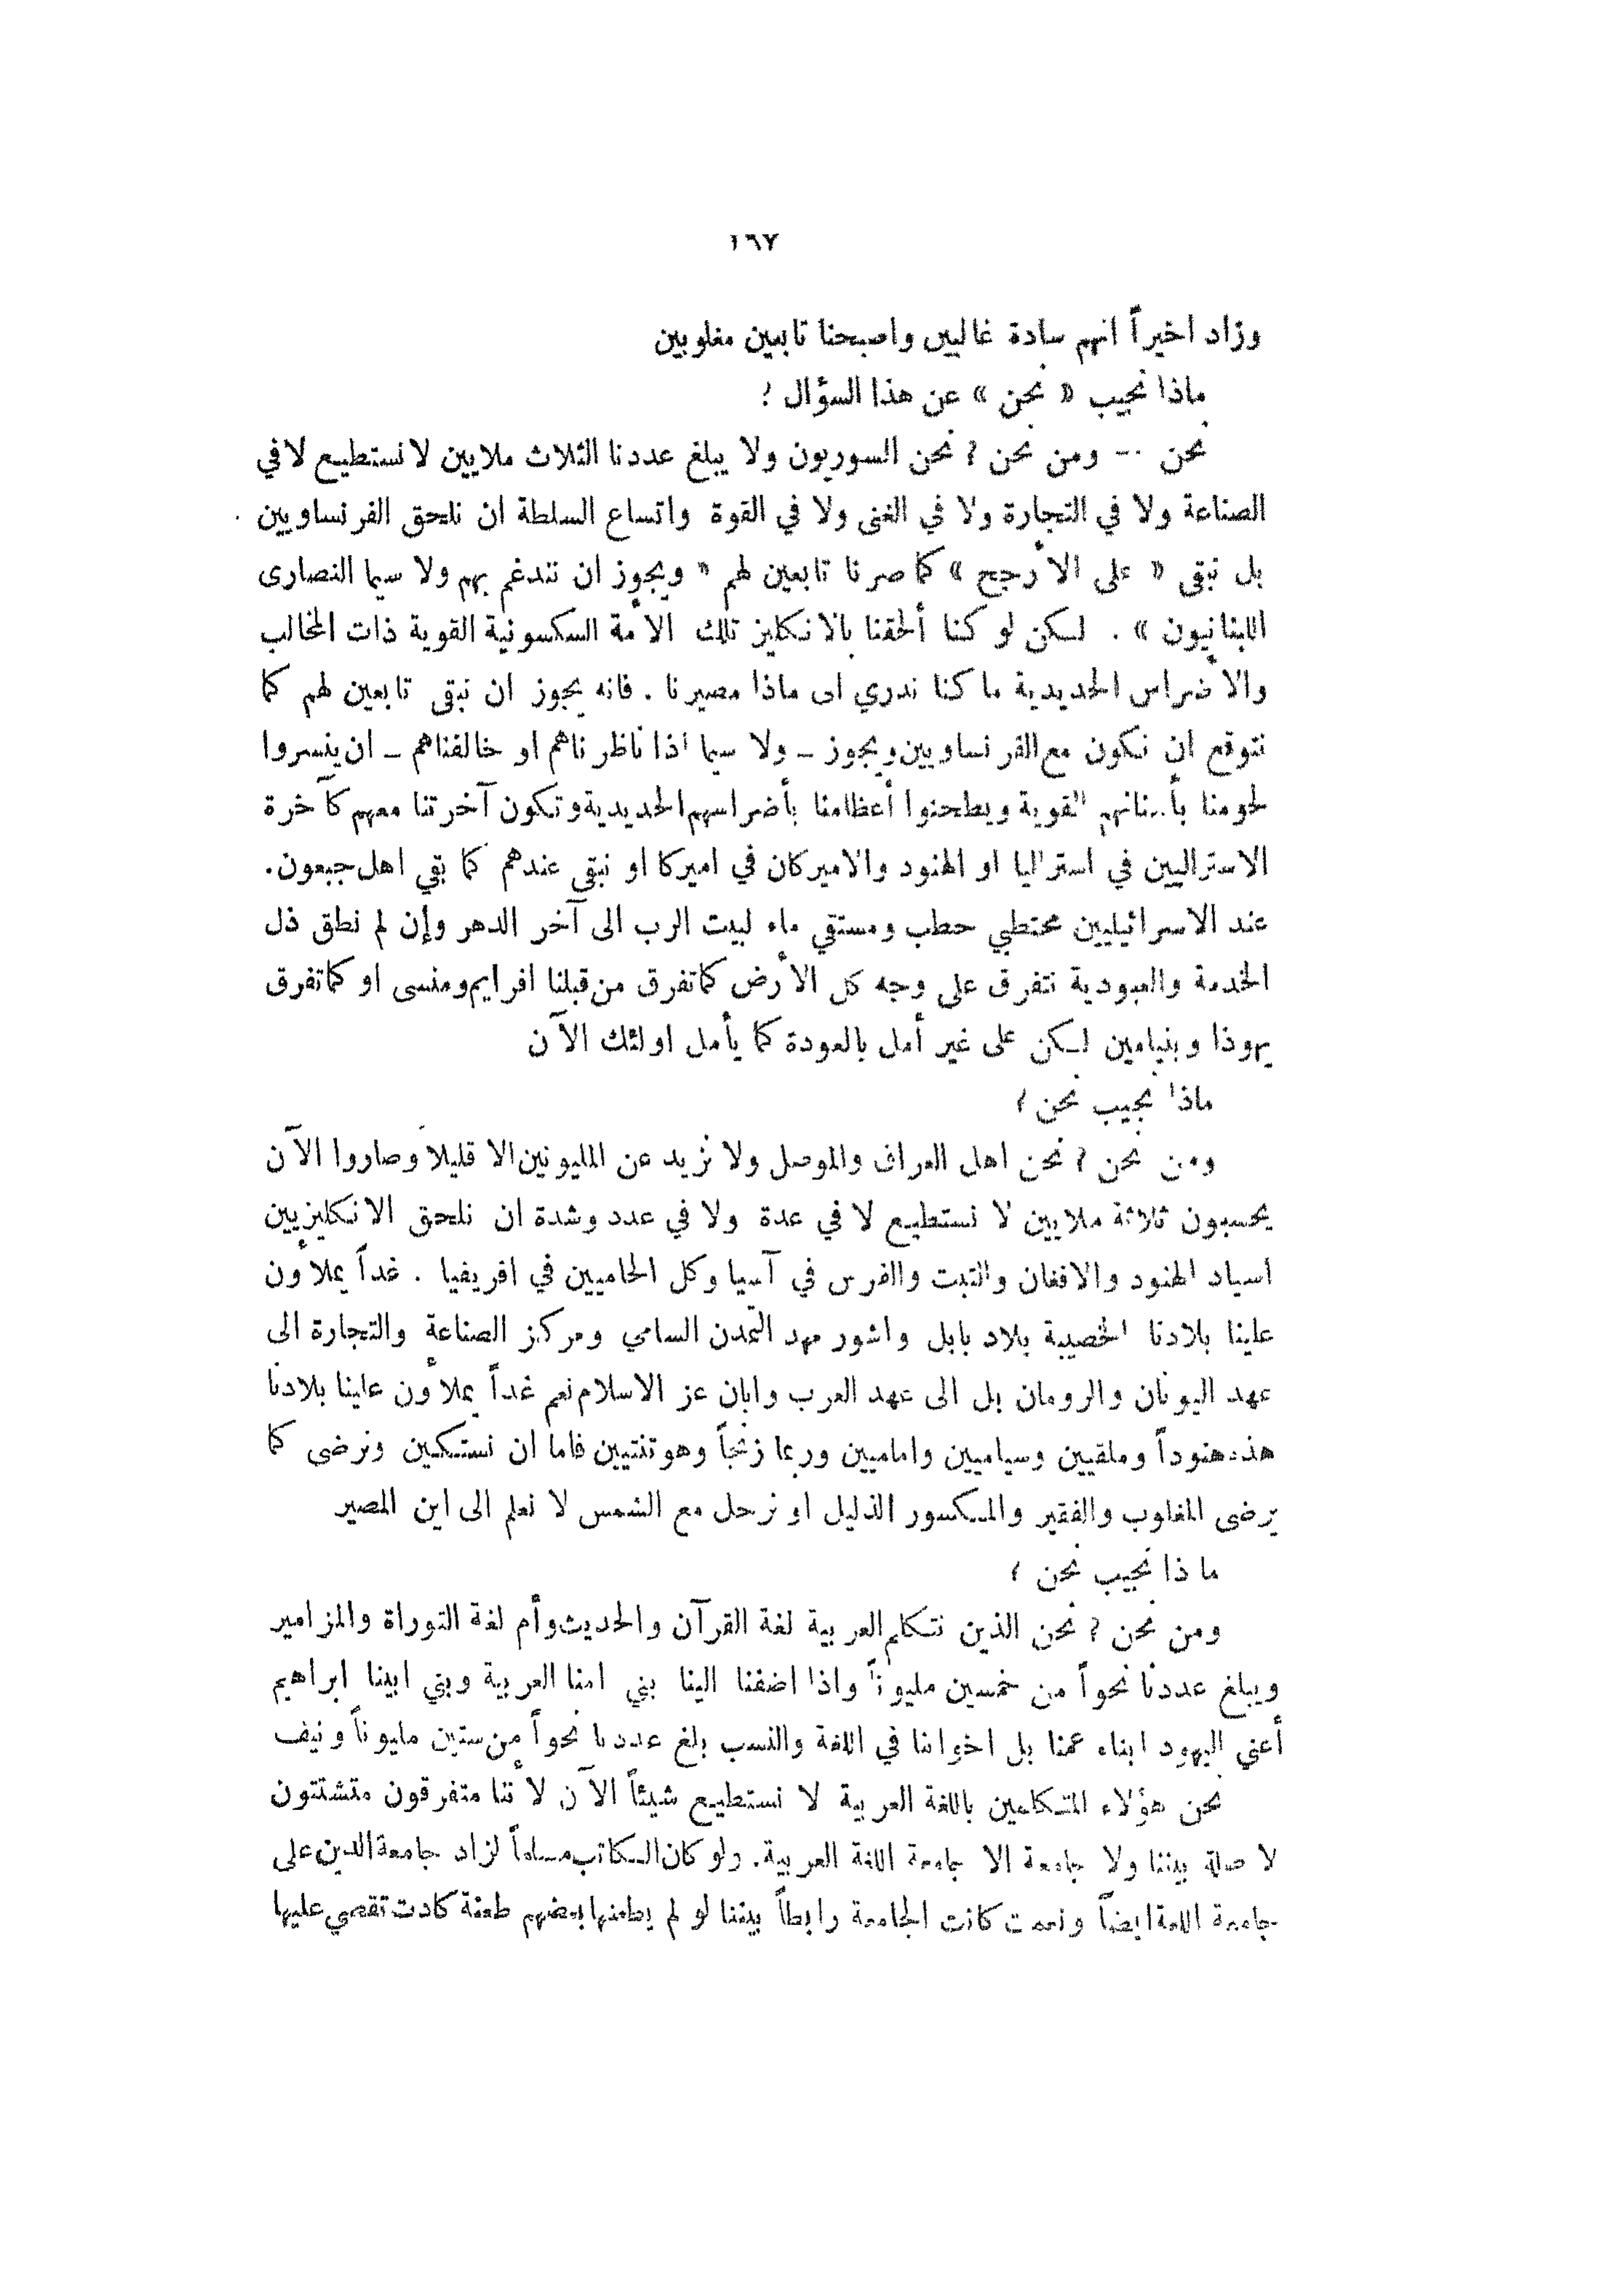 ١٦٧
وزاد اخيراً انهم سادة غالبين واصبحنا تابعين مغلوبين
ماذا نجيب « نحن » عن هذا السؤال ؟
نحن -- ومن نحن ؟ نحن السوريون ولا يبلغ عددنا الثلاث ملايين لا نستطيع لا في
الصناعة ولا في التجارة ولا في الغنى ولا في القوة واتساع السلطة ان نلحق الفرنساويين
بل نبقى « على الأرجح » كما صرنا تابعين لهم « ويجوز ان نندغم بهم ولا سيما النصارى
اللبنانيون » . لكن لو كنا ألحقنا بالانكليز تلك الأمة السكسونية القوية ذات المخالب
والأضراس الحديدية ما كنا ندري الى ماذا مصيرنا . فانه يجوز ان نبقى تابعين لهم كما
نتوقع ان نكون مع الفرنساويين ويجوز – ولا سيما اذا ناظرناهم او خالفناهم – ان ينسروا
لحومنا بأسنانهم القوية ويطحنوا أعظامنا بأضراسهم الحديدية وتكون آخرتنا معهم كآخرة
الاستراليين في استراليا او الهنود والاميركان في اميركا او نبقى عندهم كما بقي اهل جبعون.
عند الاسرائيليين محتطبي حطب ومستقي ماء لبيت الرب الى آخر الدهر وإن لم نطق ذل
الخدمة والعبودية نتفرق على وجه كل الأرض كما تفرق من قبلنا افرايم ومنسى او كما تفرق
يهوذا وبنيامين لكن على غير أمل بالعودة كما يأمل اولئك الآن
ماذا نجيب نحن ؟
ومن نحن ؟ نحن اهل العراق والموصل ولا نزيد عن المليونين الا قليلاً وصاروا الآن
يحسبون ثلاثة ملايين لا نستطيع لا في عدة ولا في عدد وشدة ان نلحق الانكليزيين
اسياد الهنود والافغان والتبت والفرس في آسيا وكل الحاميين في افريقيا . غداً يملأون
علينا بلادنا الخصيبة بلاد بابل واشور مهد التمدن السامي ومركز الصناعة والتجارة الى
عهد اليونان والرومان بل الى عهد العرب وابان عز الاسلام نعم غداً يملأون علينا بلادنا
هذه هنوداً وملقيين وسياميين واماميين وربما زنجاً وهوتنتيين فاما ان نستكين ونرضى كما
يرضى المغلوب والفقير والمكسور الذليل او نرحل مع الشمس لا نعلم الى اين المصير
ما ذا نجيب نحن ؟
ومن نحن ؟ نحن الذين نتكلم العربية لغة القرآن والحديث وأم لغة التوراة والمزامير
ويبلغ عددنا نحواً من خمسين مليوناً واذا اضفنا الينا بني امنا العربية وبني ابينا ابراهيم
أعني اليهود ابناء عمنا بل اخواننا في اللغة والنسب بلغ عددنا نحواً من ستين مليوناً ونيف
نحن هؤلاء المتكلمين باللغة العربية لا نستطيع شيئاً الآن لأننا متفرقون متشتتون
لا صلة بيننا ولا جامعة الا جامعة اللغة العربية. ولو كان الكاتب مسلماً لزاد جامعة الدين على
جامعة اللغة ايضاً ونعمت كانت الجامعة رابطاً بيننا لو لم يطعنها بعضهم طعنة كادت تقضي عليها